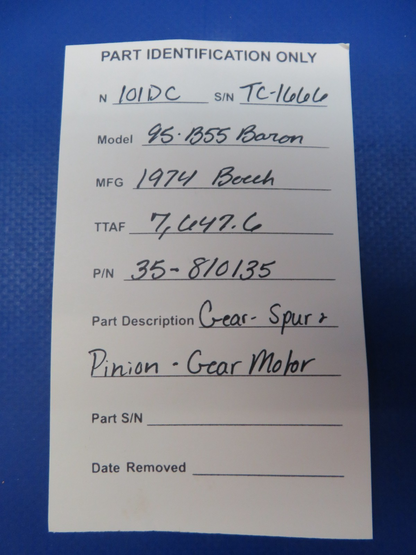 PART IDENTIFICATION ONLY
N 101DC S/N TC-1666
Model 95-B55 Baron
MFG 1974 Beech
TTAF 7,647.6
P/N 35-810135
Part Description Gear- Spur &
Pinion - Gear Motor
Part S/N
Date Removed